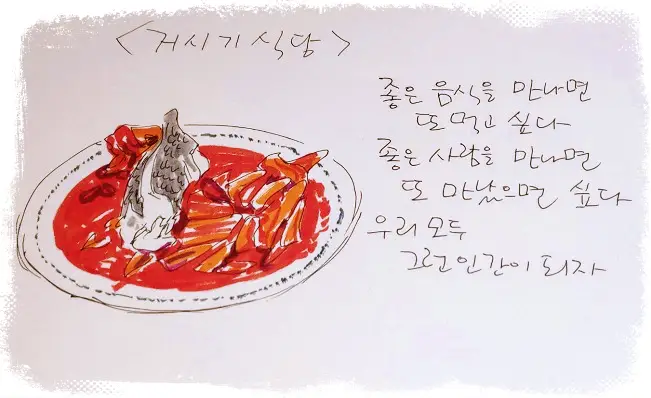 <거시기 식당>
좋은 음식을 만나면
또 먹고 싶다
좋은 사람을 만나면
또 만났으면 싶다
우리 모두
그런 인간이 되자